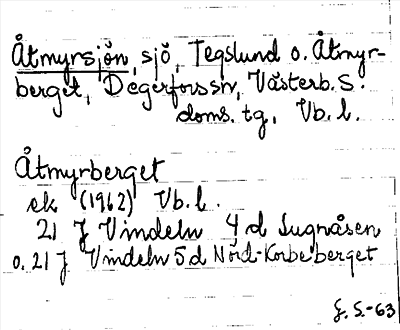 Åtmyrsjön, sjö, Tegslund o. Åtmyr-
berget, Degerforssn, Västerb. S.
doms. tg, Vb. l.
Åtmyrberget
ek (1962) Vb. l.
21 J Vindeln 4 d Lugnåsen
o. 21 J Vindeln 5 d Nord-Korbe berget
S.-63